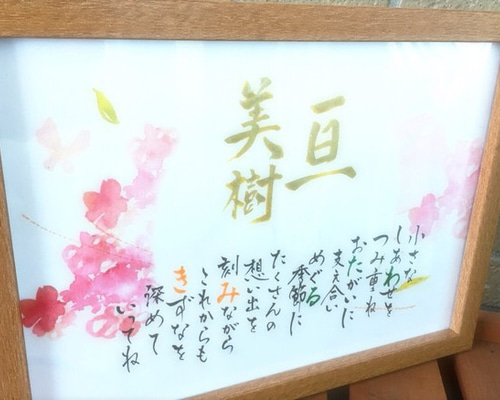 亘
美樹
小さな
しあわせを
つみ重ね
おたがいに
支え合い
めぐる
季節に
たくさんの
想い出を
刻みながら
これからも
きずなを
深めて
いってね